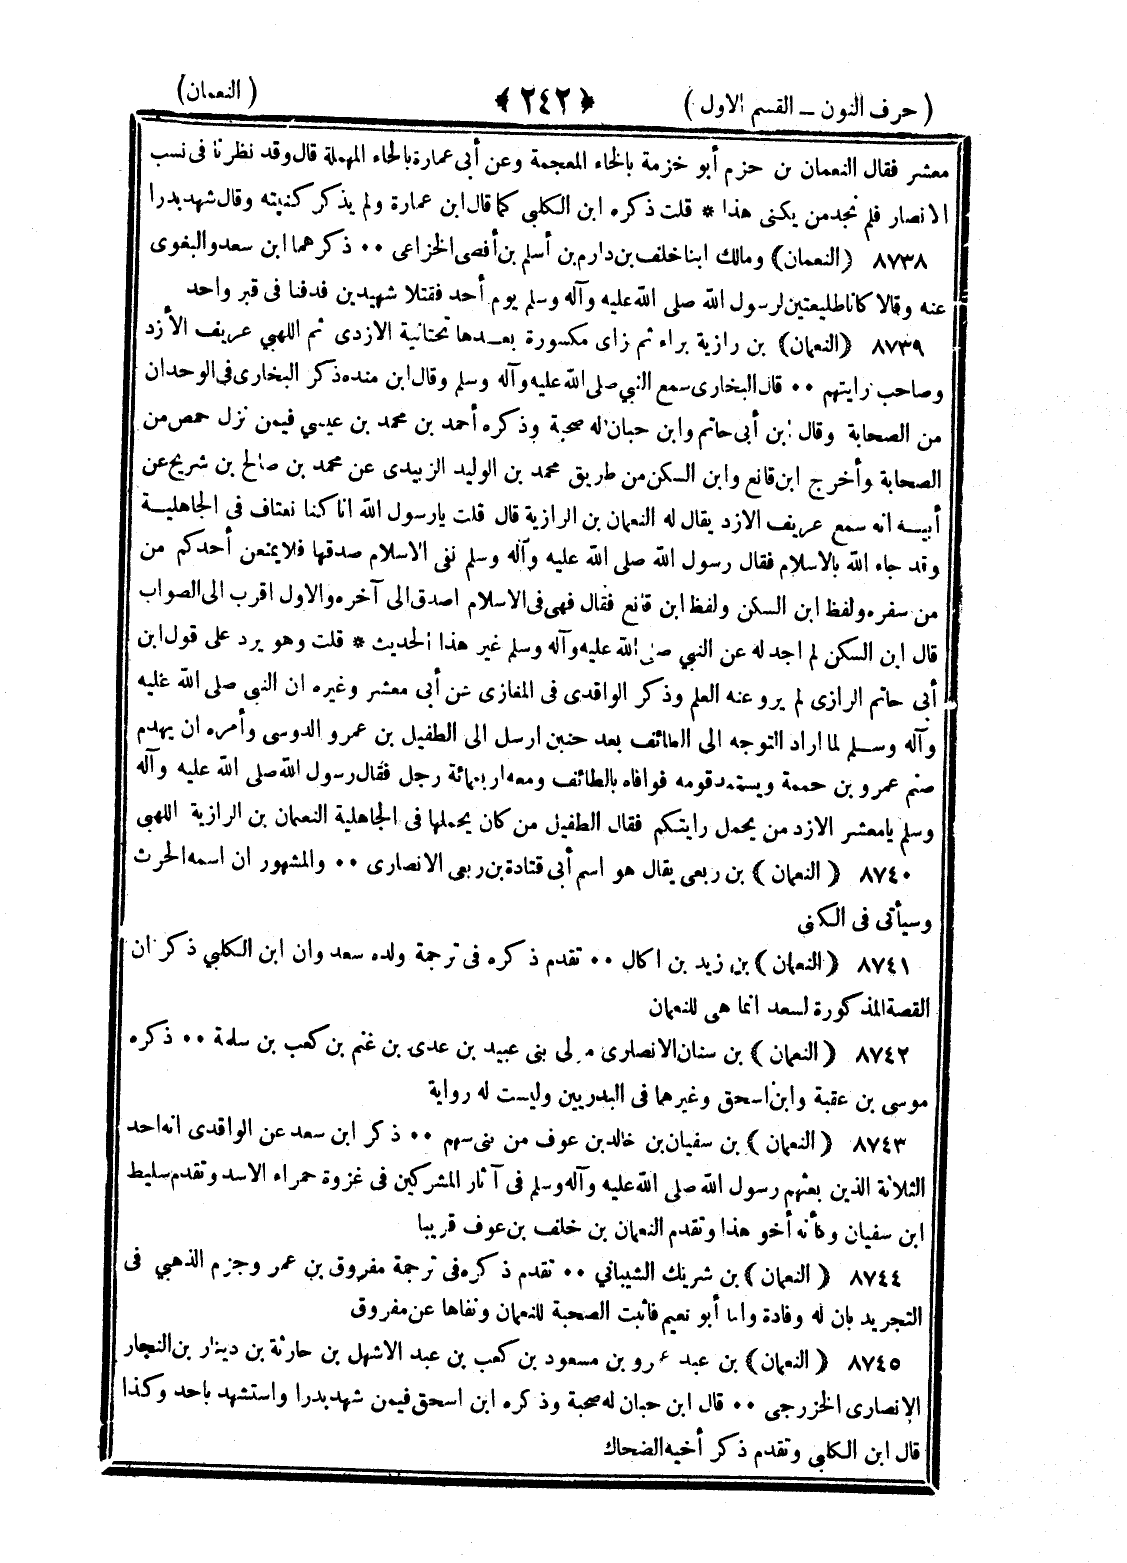 ( حرف النون ــ القسم الاول ) ﴿ ٢٤٢ ﴾ ( النعمان )
معشر فقال النعمان بن حزم أبو خزمة بالخاء المعجمة وعن أبى عمارة بالحاء المهملة قال وقد نظرنا فى نسب
الانصار فلم نجد من يكنى هذا * قلت ذكره ابن الكلبى كما قال ابن عمارة ولم يذكر كنيته وقال شهد بدرا
٨٧٣٨ ( النعمان ) ومالك ابنا خلف بن دارم بن أسلم بن أفصى الخزاعى ٠٠ ذكرهما ابن سعد والبغوى
عنه وقالا كانا طليعتين لرسول الله صلى الله عليه وآله وسلم يوم أحد فقتلا شهيدين فدفنا فى قبر واحد
٨٧٣٩ ( النعمان ) بن رازية براء ثم زاى مكسورة بعــدها تحتانية الازدى ثم اللهبي عريف الأزد
وصاحب رايتهم ٠٠ قال البخارى سمع النبي صلى الله عليه وآله وسلم وقال ابن منده ذكر البخارى فى الوحدان
من الصحابة وقال ابن أبى حاتم وابن حبان له صحبة وذكره أحمد بن محمد بن عيسي فيمن نزل حمص من
الصحابة وأخرج ابن قانع وابن السكن من طريق محمد بن الوليد الزبيدى عن محمد بن صالح بن شريح عن
أبيــه انه سمع عريف الازد يقال له النعمان بن الرازية قال قلت يارسول الله انا كنا نعتاف فى الجاهليــة
وقد جاء الله بالاسلام فقال رسول الله صلى الله عليه وآله وسلم نفى الاسلام صدقها فلا يمنعن أحدكم من
من سفره ولفظ ابن السكن ولفظ ابن قانع فقال فهى فى الاسلام اصدق الى آخره والاول اقرب الى الصواب
قال ابن السكن لم اجد له عن النبي صلى الله عليه وآله وسلم غير هذا الحديث * قلت وهو يرد على قول ابن
أبى حاتم الرازى لم يرو عنه العلم وذكر الواقدى فى المغازى عن أبى معشر وغيره ان النبي صلى الله عليه
وآله وســلم لما اراد التوجه الى الطائف بعد حنين ارسل الى الطفيل بن عمرو الدوسى وأمره ان يهدم
صنم عمرو بن حممة ويستمد قومه فوافاه بالطائف ومعه اربعمائة رجل فقال رسول الله صلى الله عليه وآله
وسلم يامعشر الازد من يحمل رايتكم فقال الطفيل من كان يحملها فى الجاهلية النعمان بن الرازية اللهبى
٨٧٤٠ ( النعمان ) بن ربعى يقال هو اسم أبى قتادة بن ربعى الانصارى ٠٠ والمشهور ان اسمه الحرث
وسيأتى فى الكنى
٨٧٤١ ( النعمان ) بن زيد بن اكال ٠٠ تقدم ذكره فى ترجمة ولده سعد وان ابن الكلبي ذكر ان
القصة المذكورة لسعد انما هى للنعمان
٨٧٤٢ ( النعمان ) بن سنان الانصارى مولى بنى عبيد بن عدى بن غنم بن كعب بن سلمة ٠٠ ذكره
موسى بن عقبة وابن اسحق وغيرهما فى البدريين وليست له رواية
٨٧٤٣ ( النعمان ) بن سفيان بن خالد بن عوف من بنى سهم ٠٠ ذكر ابن سعد عن الواقدى انه احد
الثلاثة الذين بعثهم رسول الله صلى الله عليه وآله وسلم فى آثار المشركين فى غزوة حمراء الاسد وتقدم سليط
ابن سفيان وكأنه أخو هذا وتقدم النعمان بن خلف بن عوف قريبا
٨٧٤٤ ( النعمان ) بن شريك الشيباني ٠٠ تقدم ذكره فى ترجمة مفروق بن عمر وجزم الذهبي فى
التجريد بان له وفادة واما أبو نعيم فأثبت الصحبة للنعمان ونفاها عن مفروق
٨٧٤٥ ( النعمان ) بن عبد عمرو بن مسعود بن كعب بن عبد الاشهل بن حارثة بن دينار بن النجار
الانصارى الخزرجى ٠٠ قال ابن حبان له صحبة وذكره ابن اسحق فيمن شهد بدرا واستشهد باحد وكذا
قال ابن الكلبي وتقدم ذكر أخيه الضحاك